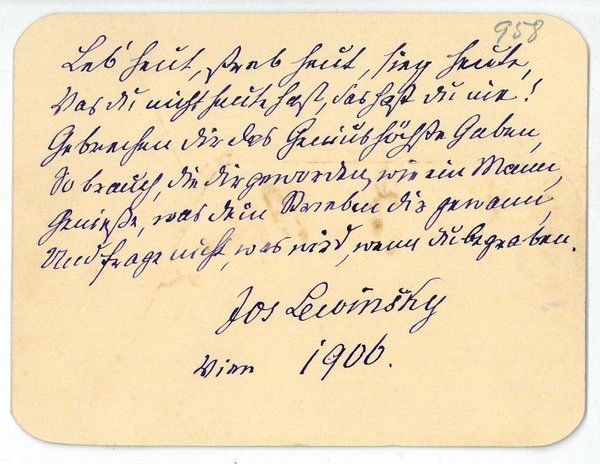 958
Leb' heut, streb heut, sieg heute,
Was du nicht heute hast, das hast du nie!
Gebrechen dir des Genius höchste Gaben,
So brauch, die dir geworden, wie ein Mann,
Genieße, was dein Streben dir gewann,
Und frage nicht, was wird, wenn du begraben.
Jos Lewinsky
Wien 1906.